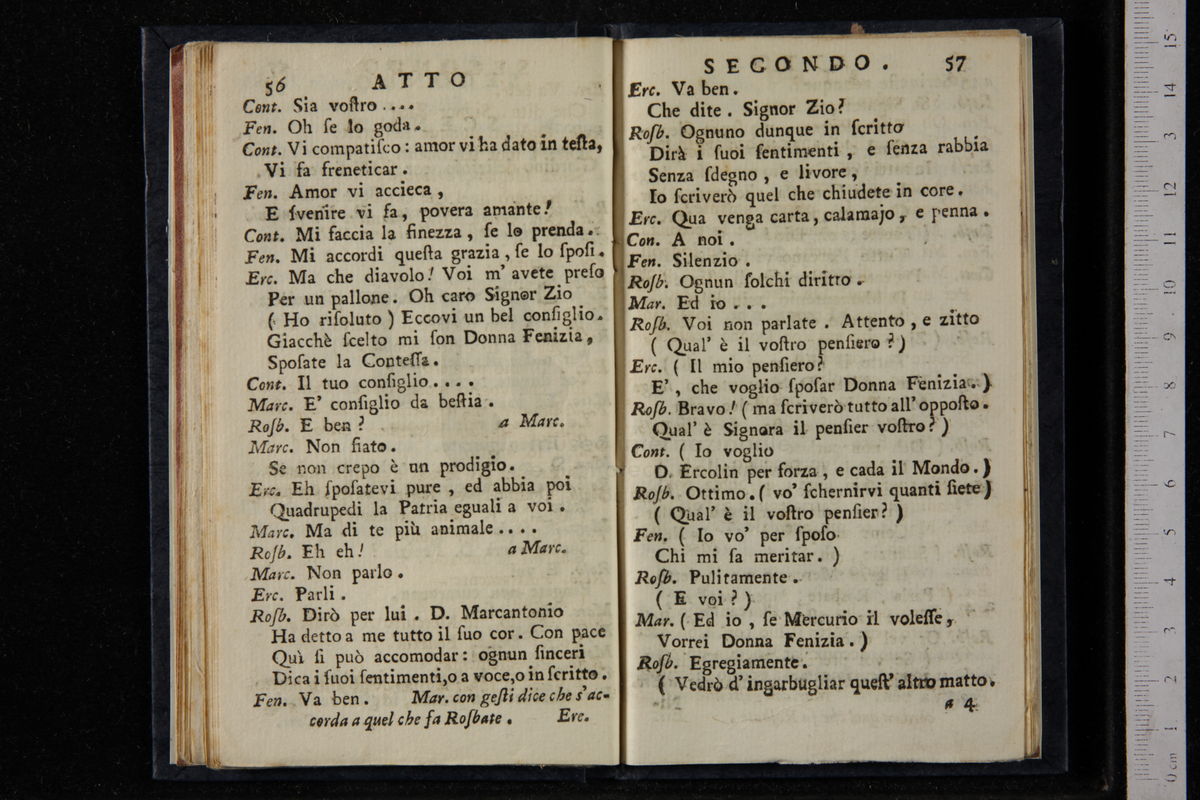 56 ATTO
Cont. Sia voſtro ....
Fen. Oh ſe lo goda.
Cont. Vi compatiſco : amor vi ha dato in teſta,
Vi fa freneticar.
Fen. Amor vi accieca ,
E ſvenire vi fa, povera amante!
Cont. Mi faccia la finezza , ſe lo prenda.
Fen. Mi accordi queſta grazia , ſe lo ſpoſi.
Erc. Ma che diavolo! Voi m' avete preſo
Per un pallone. Oh caro Signor Zio
( Ho riſoluto ) Eccovi un bel conſiglio.
Giacchè ſcelto mi ſon Donna Fenizia,
Spoſate la Conteſſa.
Cont. Il tuo conſiglio ....
Marc. E' conſiglio da beſtia .
Roſb. E ben ? a Marc.
Marc. Non fiato.
Se non crepo è un prodigio.
Erc. Eh ſpoſatevi pure , ed abbia poi
Quadrupedi la Patria eguali a voi .
Marc. Ma di te più animale ....
Roſb. Eh eh! a Marc.
Marc. Non parlo .
Erc. Parli .
Roſb. Dirò per lui . D. Marcantonio
Ha detto a me tutto il ſuo cor. Con pace
Quì ſi può accomodar : ognun ſinceri
Dica i ſuoi ſentimenti,o a voce,o in ſcritto.
Fen. Va ben . Mar. con geſti dice che s'ac-
corda a quel che fa Roſbate . Erc.
SECONDO . 57
Erc. Va ben .
Che dite . Signor Zio?
Roſb. Ognuno dunque in ſcritto
Dirà i ſuoi ſentimenti , e ſenza rabbia
Senza ſdegno , e livore ,
Io ſcriverò quel che chiudete in core .
Erc. Qua venga carta, calamajo, e penna .
Con. A noi .
Fen. Silenzio .
Roſb. Ognun ſolchi diritto .
Mar. Ed io . . .
Roſb. Voi non parlate . Attento , e zitto
( Qual' è il voſtro penſiero ?)
Erc. ( Il mio penſiero?
E' , che voglio ſpoſar Donna Fenizia. )
Roſb. Bravo! ( ma ſcriverò tutto all' oppoſto.
Qual' è Signora il penſier voſtro? )
Cont. ( Io voglio
D. Ercolin per forza , e cada il Mondo. )
Roſb. Ottimo. ( vo' ſchernirvi quanti ſiete)
( Qual' è il voſtro penſier? )
Fen. ( Io vo' per ſpoſo
Chi mi ſa meritar. )
Roſb. Pulitamente .
( E voi ? )
Mar. ( Ed io , ſe Mercurio il voleſſe,
Vorrei Donna Fenizia . )
Roſb. Egregiamente .
( Vedrò d' ingarbugliar queſt' altro matto.
a 4